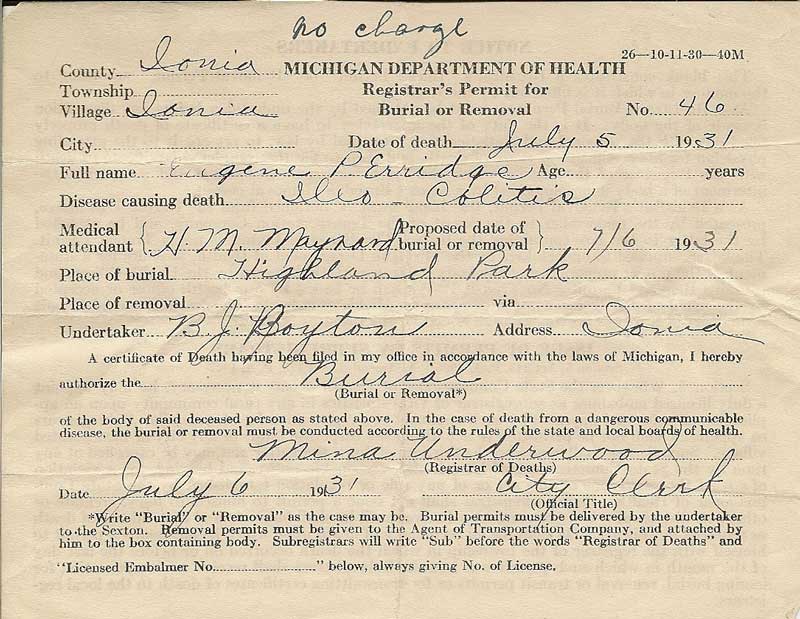 no charge
26—10-11-30—40M
County Ionia MICHIGAN DEPARTMENT OF HEALTH
Township Registrar's Permit for
Village Ionia Burial or Removal No. 46
City Date of death July 5 1931
Full name Eugene P. Erridge Age years
Disease causing death Ileo - Colitis
Medical attendant { H. M. Maynard Proposed date of burial or removal } 7/6 1931
Place of burial Highland Park
Place of removal via
Undertaker B. J. Boyton Address Ionia
A certificate of Death having been filed in my office in accordance with the laws of Michigan, I hereby
authorize the Burial
(Burial or Removal*)
of the body of said deceased person as stated above. In the case of death from a dangerous communicable
disease, the burial or removal must be conducted according to the rules of the state and local boards of health.
Mina Underwood
(Registrar of Deaths)
Date July 6 1931 City Clerk
(Official Title)
*Write "Burial" or "Removal" as the case may be. Burial permits must be delivered by the undertaker
to the Sexton. Removal permits must be given to the Agent of Transportation Company, and attached by
him to the box containing body. Subregistrars will write "Sub" before the words "Registrar of Deaths" and
"Licensed Embalmer No. " below, always giving No. of License.